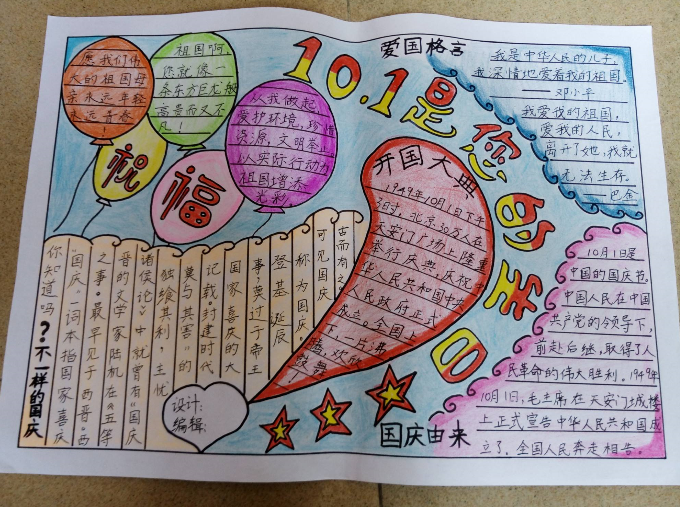 10.1是您的生日
爱国格言
我是中华人民的儿子，
我深情地爱着我的祖国。
——邓小平
我爱我的祖国，
爱我的人民，
离开了她，我就
无法生存。
——巴金
愿我们伟
大的祖国母
亲永远年轻
永远青春
！
祖国啊，
您就像一
条东方巨龙般
高贵而又不
凡！
从我做起，
爱护环境，珍惜
资源，文明举止，
以实际行动为
祖国增添
光彩
祝
福
开国大典
1949年10月1日下午
3时，北京30万人在
天安门广场上隆重
举行庆典，庆祝中
华人民共和国中央
人民政府正式
成立。全国上
下，一片沸
腾，欢欣
鼓舞！
你知道吗？不一样的国庆
“国庆”一词本指国家喜庆
之事。最早见于西晋。西
晋的文学家陆机在《五等
诸侯论》中就曾有“国庆
独飨其利，主忧
莫与其害”的
记载封建时代
国家喜庆的大
事莫过于帝王
登基、诞辰
称为国庆。
可见国庆
古而有之
设计：
编辑：
国庆由来
10月1日是
中国的国庆节。
中国人民在中国
共产党的领导下，
前赴后继，取得了人
民革命的伟大胜利。1949年
10月1日，毛主席在天安门城楼
上正式宣告中华人民共和国成
立了。全国人民奔走相告。